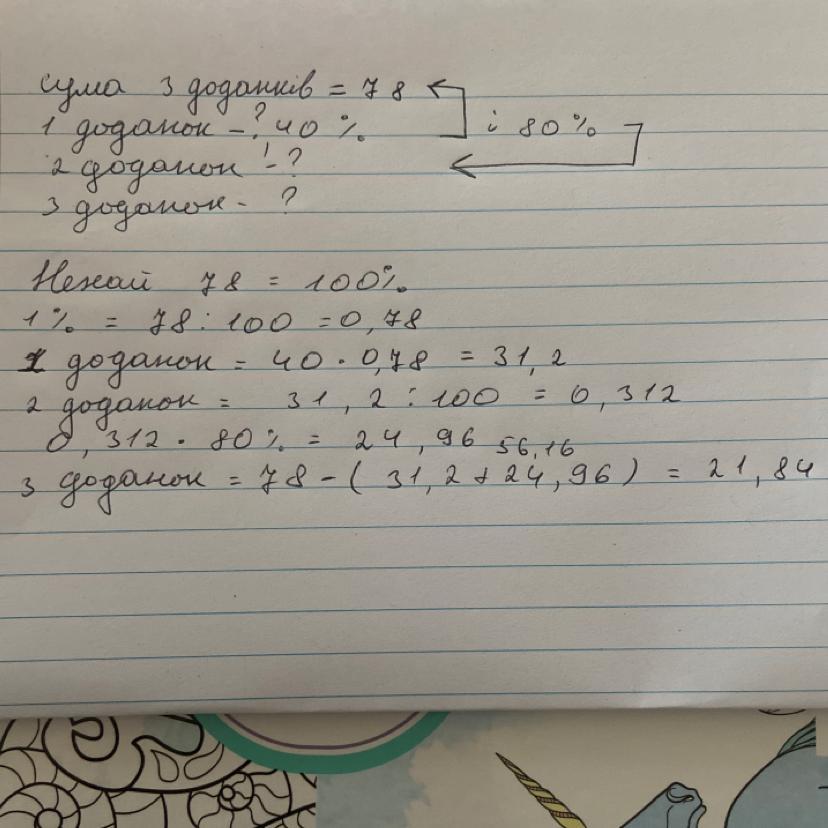 сума 3 доданків = 78
1 доданок - ? 40% і 80%
2 доданок - ?
3 доданок - ?
Нехай 78 = 100%
1% = 78 : 100 = 0,78
1 доданок = 40 · 0,78 = 31,2
2 доданок = 31,2 : 100 = 0,312
0,312 · 80% = 24,96
56,16
3 доданок = 78 - ( 31,2 + 24,96 ) = 21,84